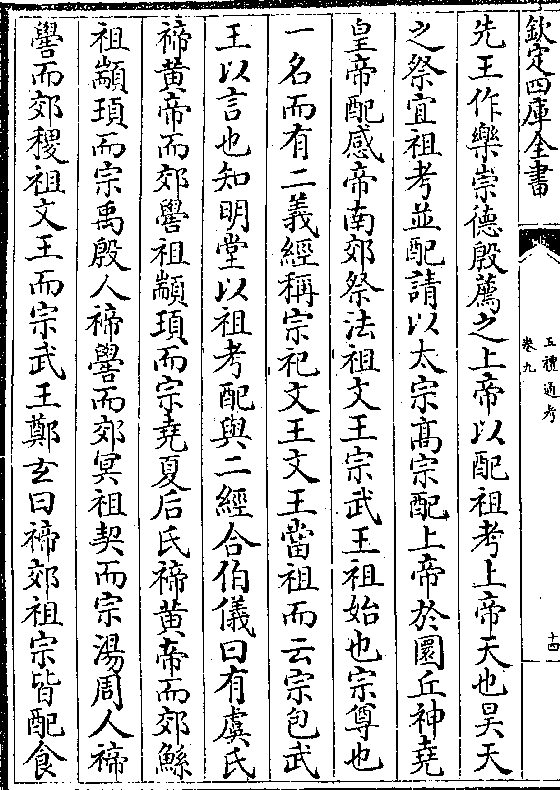 欽定四庫全書
五禮通考
卷九
十四
先王作樂崇德殷薦之上帝以配祖考上帝天也昊天
之祭宜祖考並配請以太宗高宗配上帝於圜丘神堯
皇帝配感帝南郊祭法祖文王宗武王祖始也宗尊也
一名而有二義經稱宗祀文王文王當祖而云宗包武
王以言也知明堂以祖考配與二經合伯儀曰有虞氏
禘黃帝而郊嚳祖顓頊而宗堯夏后氏禘黃帝而郊鯀
祖顓頊而宗禹殷人禘嚳而郊冥祖契而宗湯周人禘
嚳而郊稷祖文王而宗武王鄭玄曰禘郊祖宗皆配食